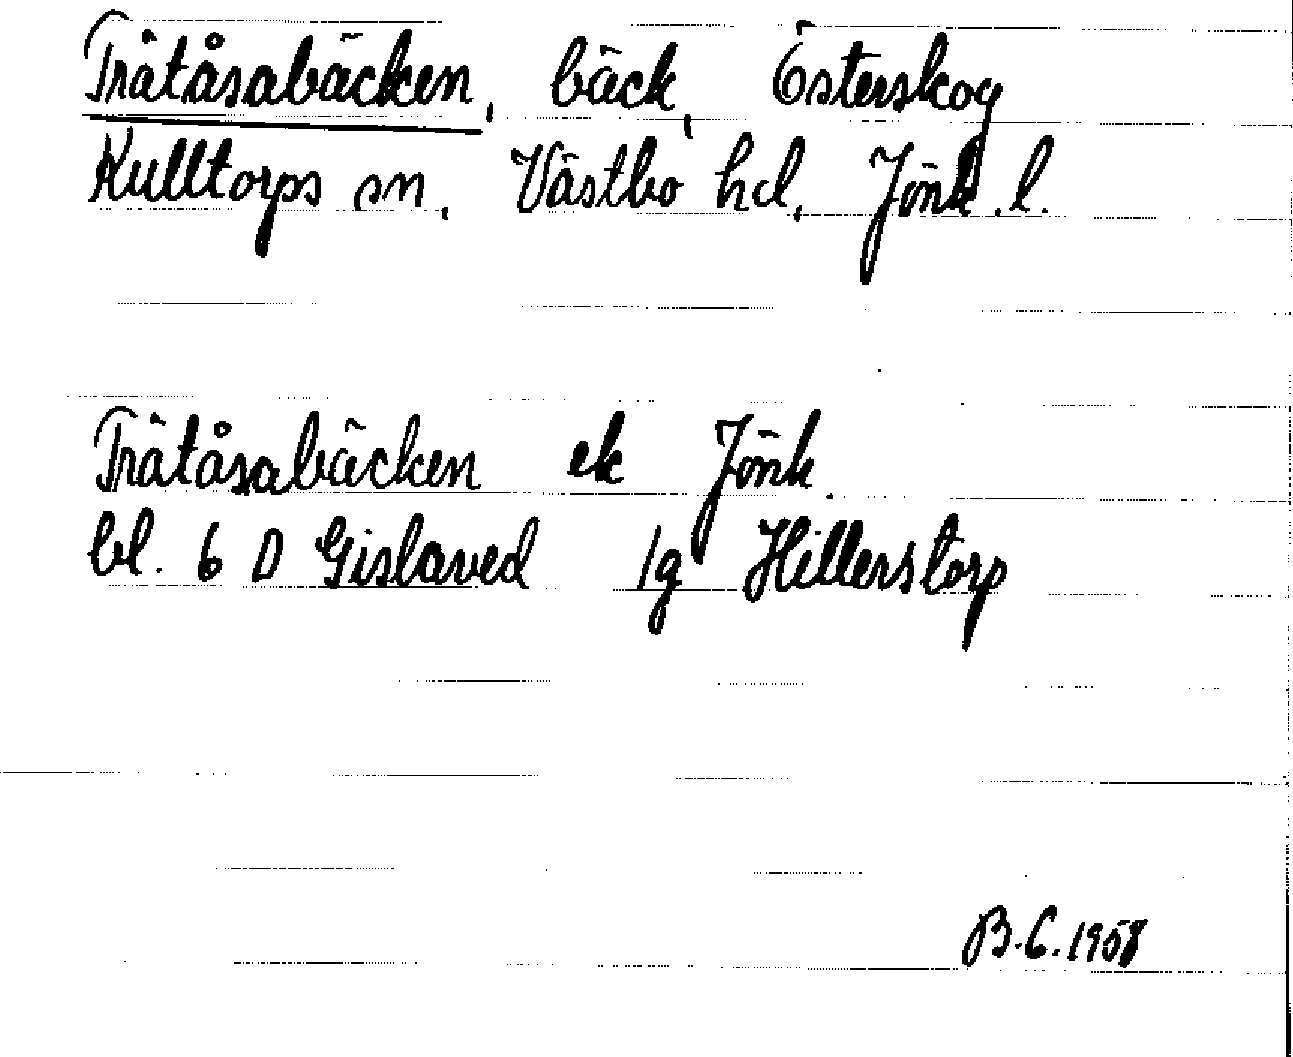 Trätåsabäcken, bäck, Österskog
Kulltorps sn, Västbo hd, Jönk. l.
Trätåsabäcken ek Jönk.
bl. 6 D Gislaved 1g Hillerstorp
B.C. 1958